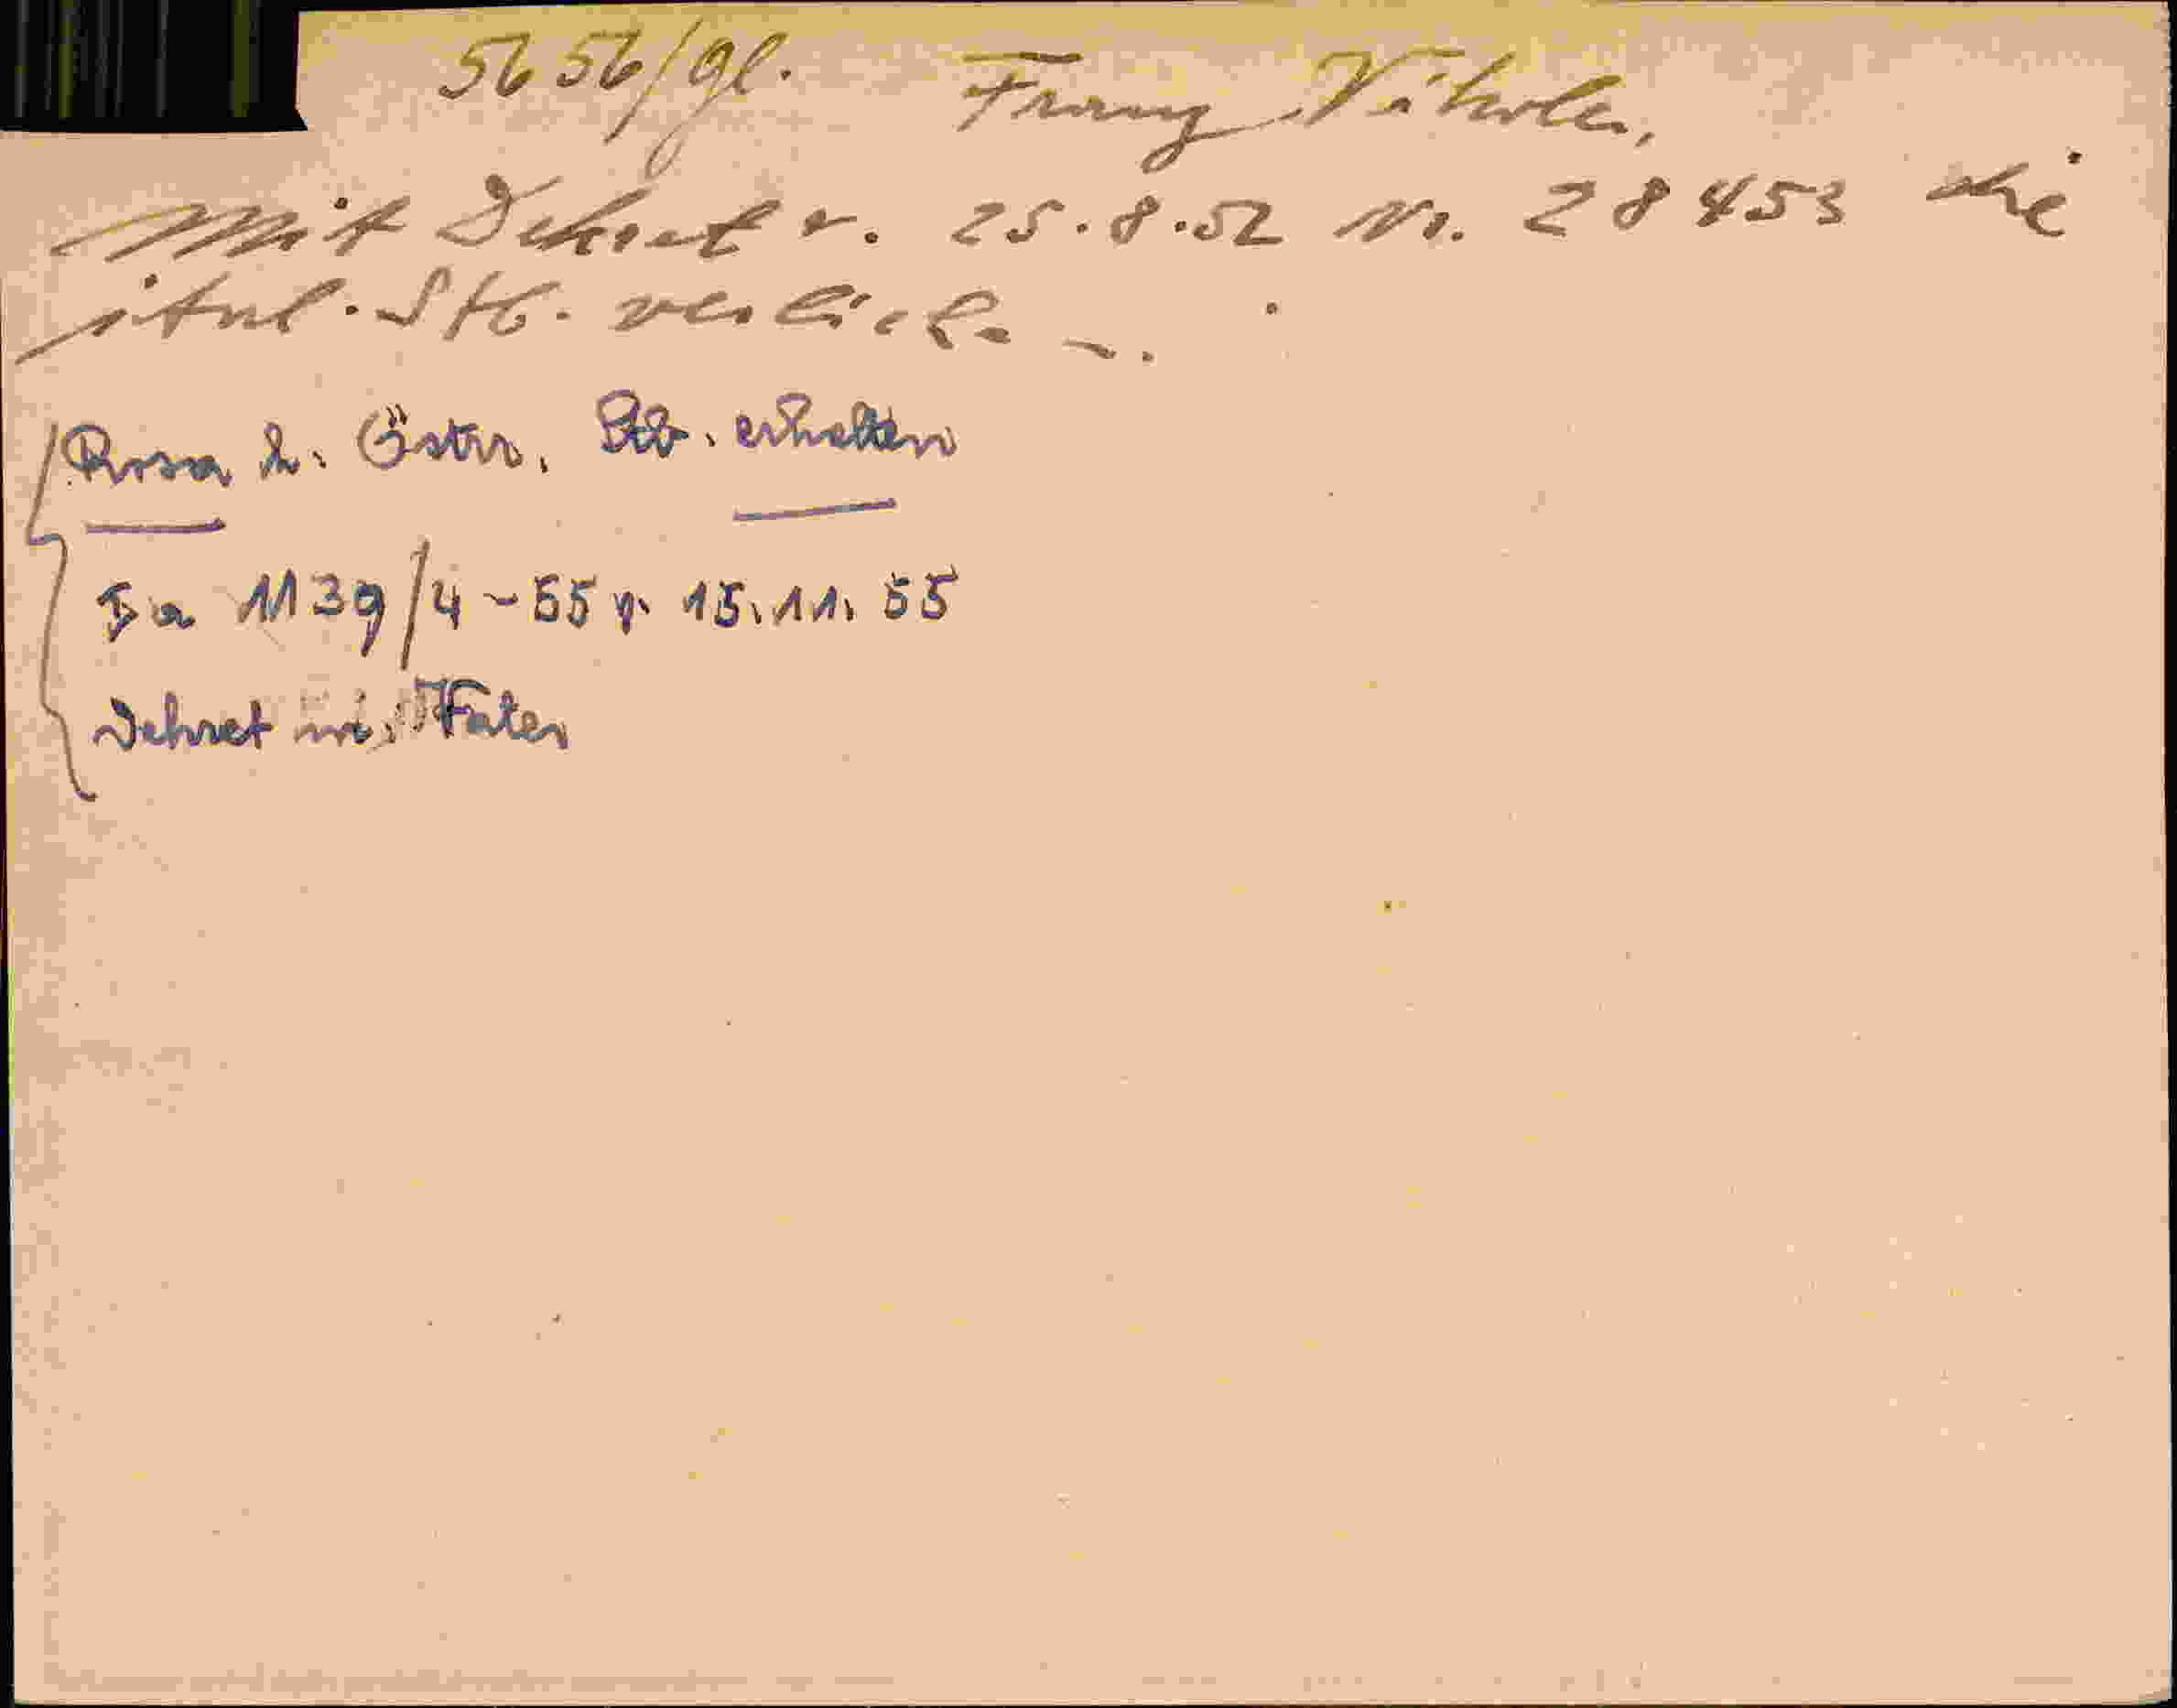 5656/gl. Franz Nikola,
Mit Dekret v. 25.8.52 Nr. 28453 die
ital. Stb. verliehen.
Rosa d. Östr. Stb. erhalten
Ia 1139/4-55 v. 15.11.55
Dekret m. Vater